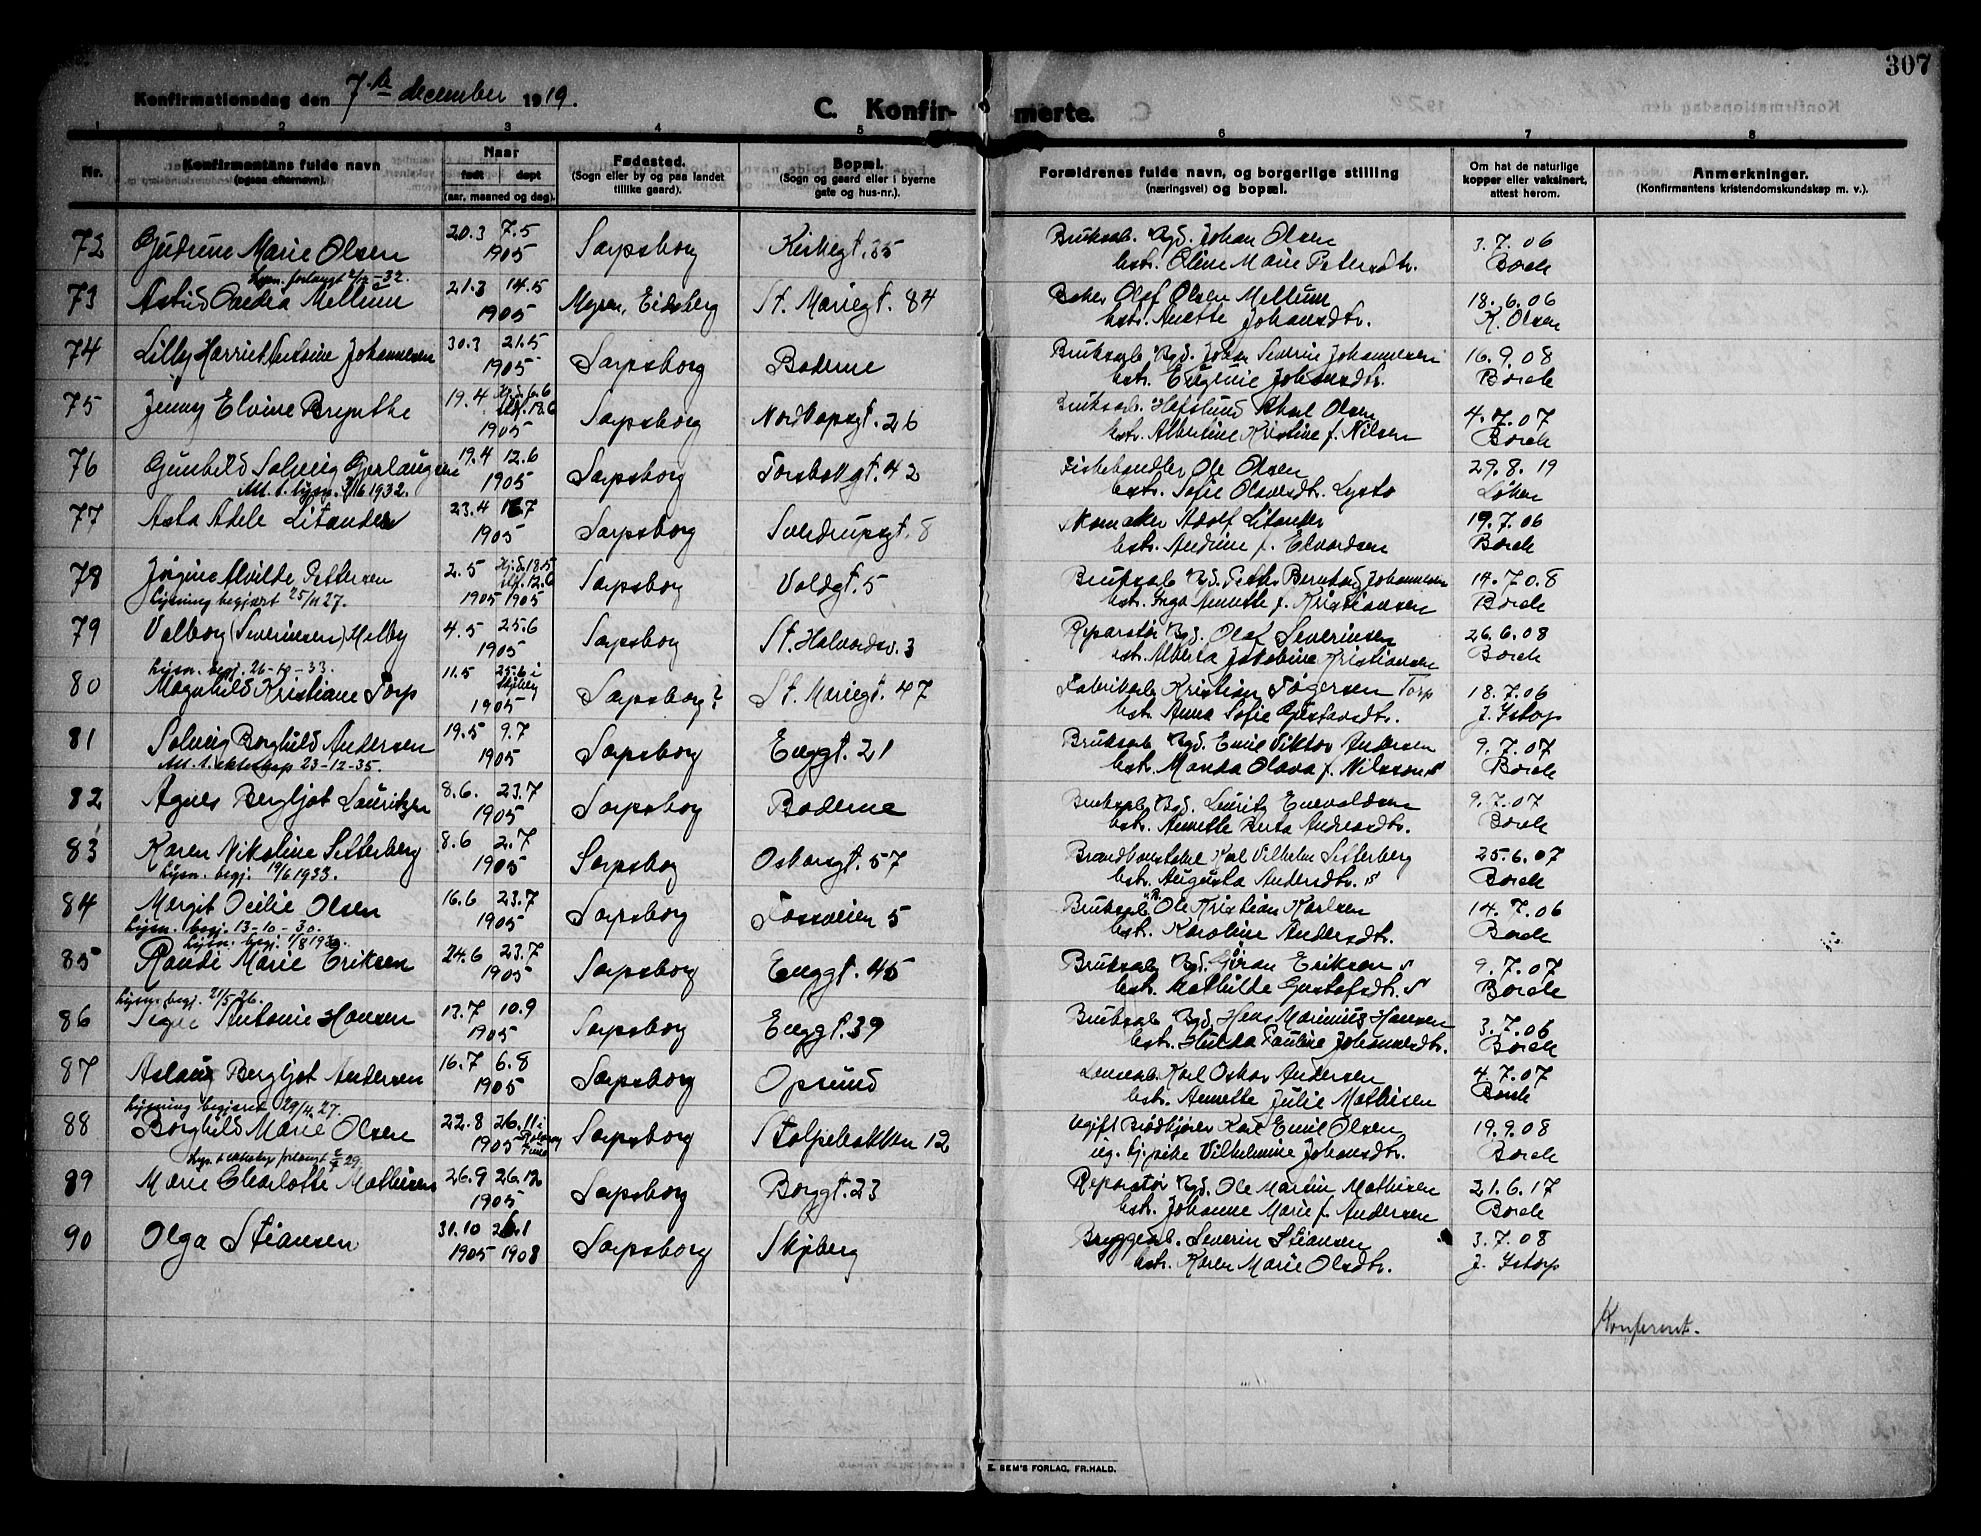 307
Konfirmationsdag den 7de december 1919.
C. Konfirmerte.
1 2 3 4 5 6 7 8
Nr.
Konfirmantens fulde navn (ogsaa efternavn).
Naar
født døpt
(aar, maaned og dag).
Fødested.
(Sogn eller by og paa landet tillike gaard).
Bopæl.
(Sogn og gaard eller i byerne gate og hus-nr.).
Forældrenes fulde navn, og borgerlige stilling (næringsvei) og bopæl.
Om hat de naturlige kopper eller vaksinert, attest herom.
Anmerkninger.
(Konfirmantens kristendomskundskap m. v.).
72 Gudrun Marie Olsen 20.3 7.5 1905 Sarpsborg Kirkegt. 35 Bruksarb. Bgd. Johan Olsen 3.7.06
hstr. Oline Marie Petersdtr. Borch
Lysn. forlangt 32.
73 Astrid Mellum 21.3 14.5 1905 Mysen, Eidsberg St. Mariegt. 84 Baker Olaf Olsen Mellum 18.6.06
hstr. Anette Johansdtr. K. Olsen
74 Lilly Harriet Johannesen 30.3 21.5 1905 Sarpsborg Baderne Bruksarb. Bgd. Johan Severin Johannesen 16.9.08
hstr. Eugenie Johansdtr. Borch
75 Jenny Elvine Brynthe 19.4 Hj.d. 6.6 1905 Sarpsborg Nordkapsgt. 26 Bruksarb. Hafslund Karl Olsen 4.7.07
hstr. Albertine Kristine f. Nilsen Borch
76 Gunhild Solveig Gerlaugsen 19.4 12.6 1905 Sarpsborg Torsbekkgt. 42 Fiskehandler Ole Olsen 29.8.19
Att. t. lysn. 3/16 1932. hstr. Sofie Olavesdtr. Lysto Løken
77 Asta Adele Litander 23.4 1905 Sarpsborg Sverdrupsgt. 8 Skomaker Adolf Litander 19.7.06
hstr. Andrine f. Edvardsen Borch
78 Jørgine Alvilde Pettersen 2.5 Hj.d. 18.5 12.6 1905 1905 Sarpsborg Voldgt. 5 Bruksarb. Bgd. Petter Berntsen Johannesen 14.7.08
Lysning begjært 25/11 27. hstr. Inga Annette f. Kristiansen Borch
79 Valborg (Severinsen) Melby 4.5 25.6 1905 Sarpsborg St. Halvordsv. 3 Reparatør Bgd. Olaf Severinsen 26.6.08
hstr. Alberta Jakobine Kristiansen Borch
Lysn. begj. 26-10-33.
80 Magnhild Kristiane Torp 11.5 25.6 i Skjeberg 1905 Sarpsborg? St. Mariegt. 47 Fabrikarb. Kristian Tøgersen Torp 18.7.06
hstr. Anna Sofie Gustavsdtr. J. Ystorp
81 Solveig Borghild Andersen 19.5 9.7 1905 Sarpsborg Enggt. 21 Bruksarb. Bgd. Emil Viktor Andersen 9.7.07
Att. t. ekteskap 23-12-35. hstr. Manda Olava f. Nilsson s Borch
82 Agnes Bergljot Lauritzen 8.6. 23.7 1905 Sarpsborg Baderne Bruksarb. Bgd. Lauritz Enevoldsen 9.7.07
hstr. Annette Berta Andreasdtr. Borch
83 Karen Nikoline Setterberg 8.6 2.7 1905 Sarpsborg Oskarsgt. 57 Brandkonstabel Karl Vilhelm Setterberg 25.6.07
Lysn. begj. 19/6 1933. hstr. Augusta Andersdtr. s Borch
84 Margit Ocilie Olsen 16.6 23.7 1905 Sarpsborg Fossveien 5 Bruksarb. Ole Kristian Karlsen 14.7.06
Lysn. begj. 13-10-30. hstr. Karoline Andersdtr. Borch
Lysn. begj. 1/8 19
85 Randi Marie Eriksen 24.6 23.7 1905 Sarpsborg Enggt. 45 Bruksarb. Bgd. Gøran Eriksen s 9.7.07
hstr. Mathilde Gustafsdtr. s Borch
Lysn. begj. 21/5 26.
86 Signe Antonie Hansen 13.7 10.9 1905 Sarpsborg Enggt. 39 Bruksarb. Bgd. Hans Marinius Hansen 3.7.06
hstr. Hulda Pauline Johannesdtr. Borch
87 Aslaug Bergljot Andersen 16.7 6.8 1905 Sarpsborg Opsund Karl Oskar Andersen 4.7.07
hstr. Annette Julie Mathisen Borch
Lysning begjært 29/11. 27.
88 Borghild Marie Olsen 22.8 26.11 i 1905 Sarpsborg Stolpebakken 12 Ugift Brødkjører Karl Emil Olsen 19.9.08
ug. tj.pike Vilhelmine Johansdtr. Borch
Lys. t. ekteskap forlangt 29.
89 Marie Charlotte Mathisen 26.9 26.12 1905 Sarpsborg Borggt. 23 Reparatør Bgd. Ole Martin Mathisen 21.6.17
hstr. Johanne Marie f. Andersen Borch
90 Olga Stiansen 31.10 26.1 1905 1908 Sarpsborg Skjeberg Bryggearb. Severin Stiansen 3.7.08
hstr. Karen Marie Olsdtr. J. Ystorp
Konferert.
E. SEM'S FORLAG, FR.HALD.